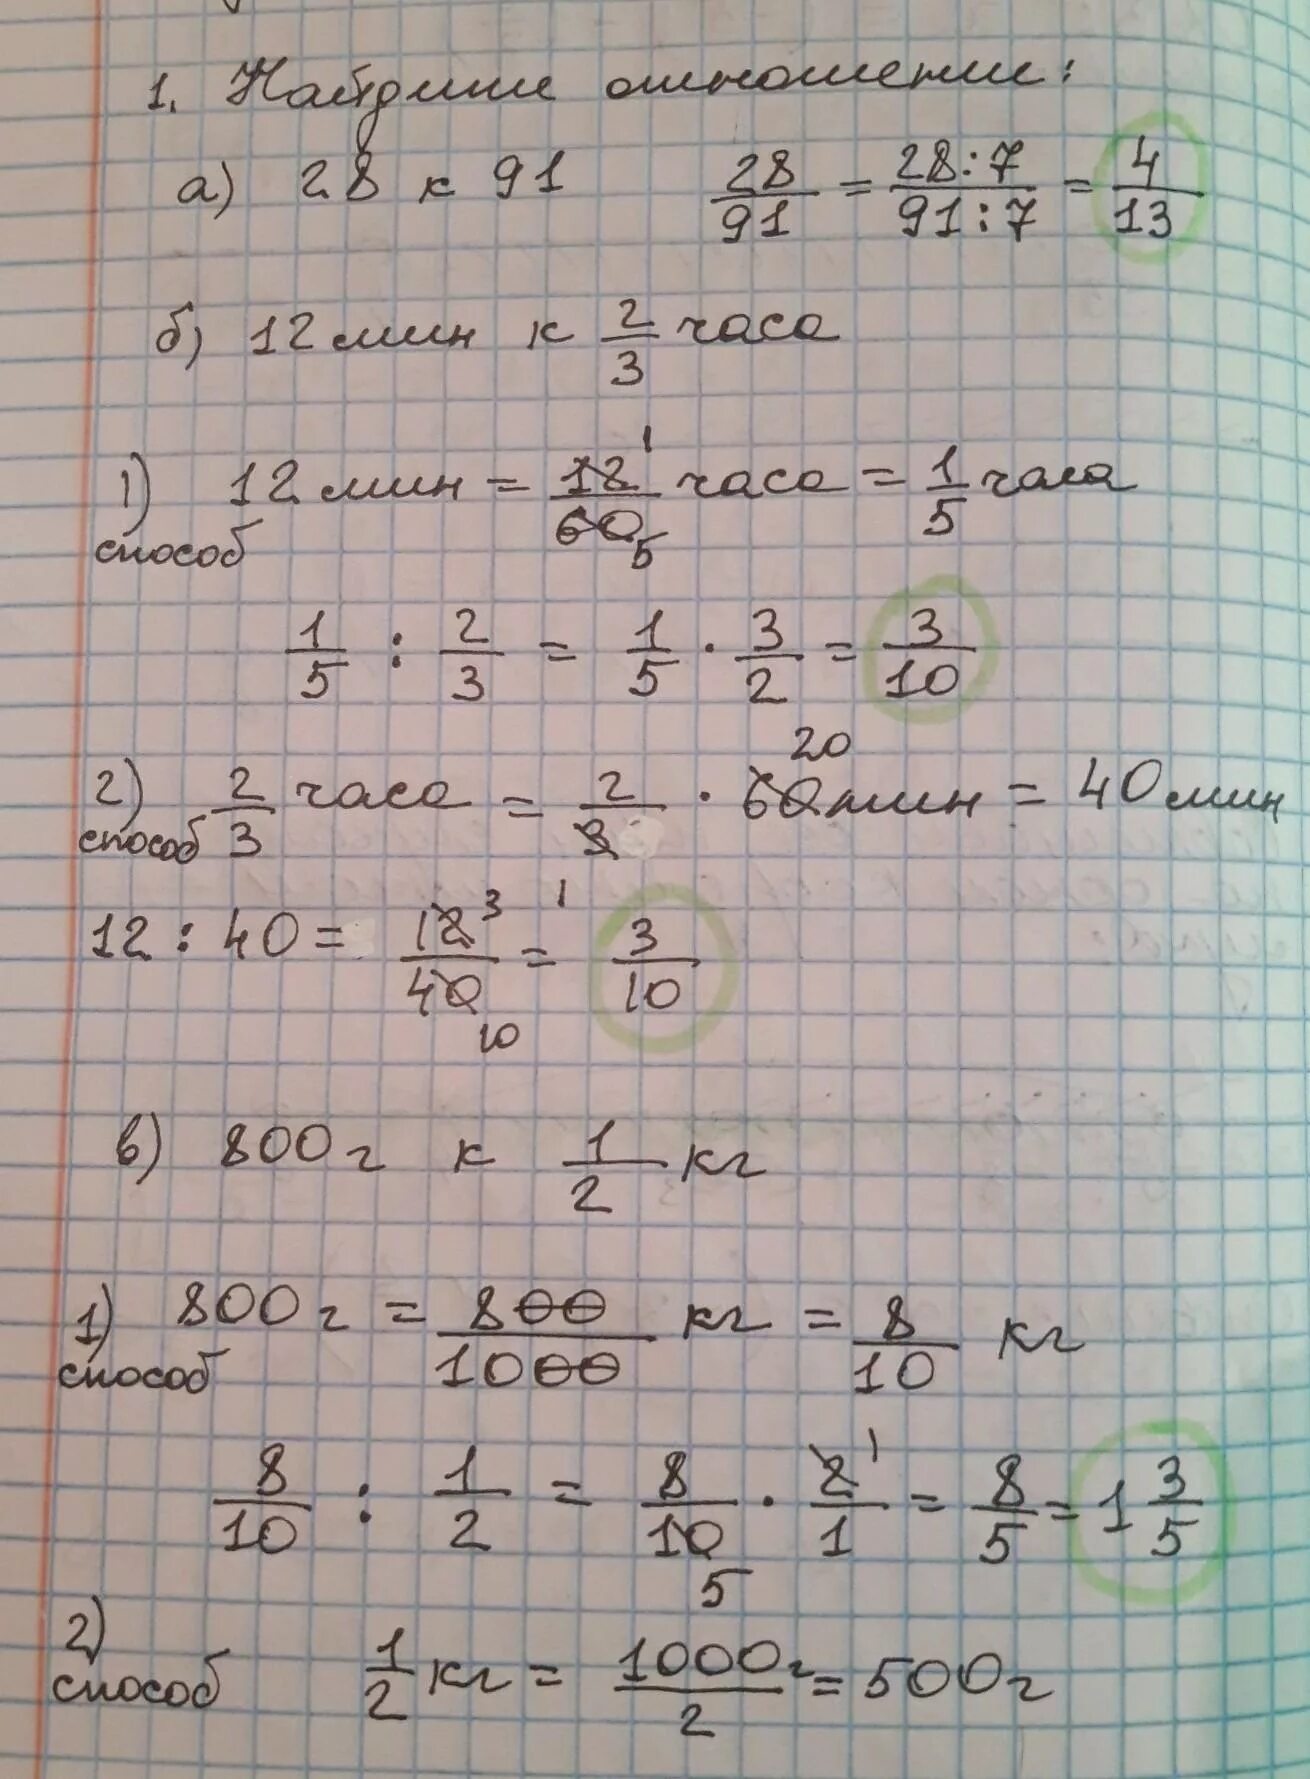 1. Найдите отношение:
а) 28 к 91 28/91 = 28:7/91:7 = 4/13
б) 12 мин к 2/3 часа
1) способ 12 мин = 12/60 часа = 1/5 часа
1 5
1/5 : 2/3 = 1/5 · 3/2 = 3/10
2) способ 2/3 часа = 2/3 · 60 мин = 40 мин
20 1
12 : 40 = 12/40 = 3/10
3 10
в) 800 г к 1/2 кг
1) способ 800 г = 800/1000 кг = 8/10 кг
8/10 : 1/2 = 8/10 · 2/1 = 8/5 = 1 3/5
5 1
2) способ 1/2 кг = 1000 г/2 = 500 г